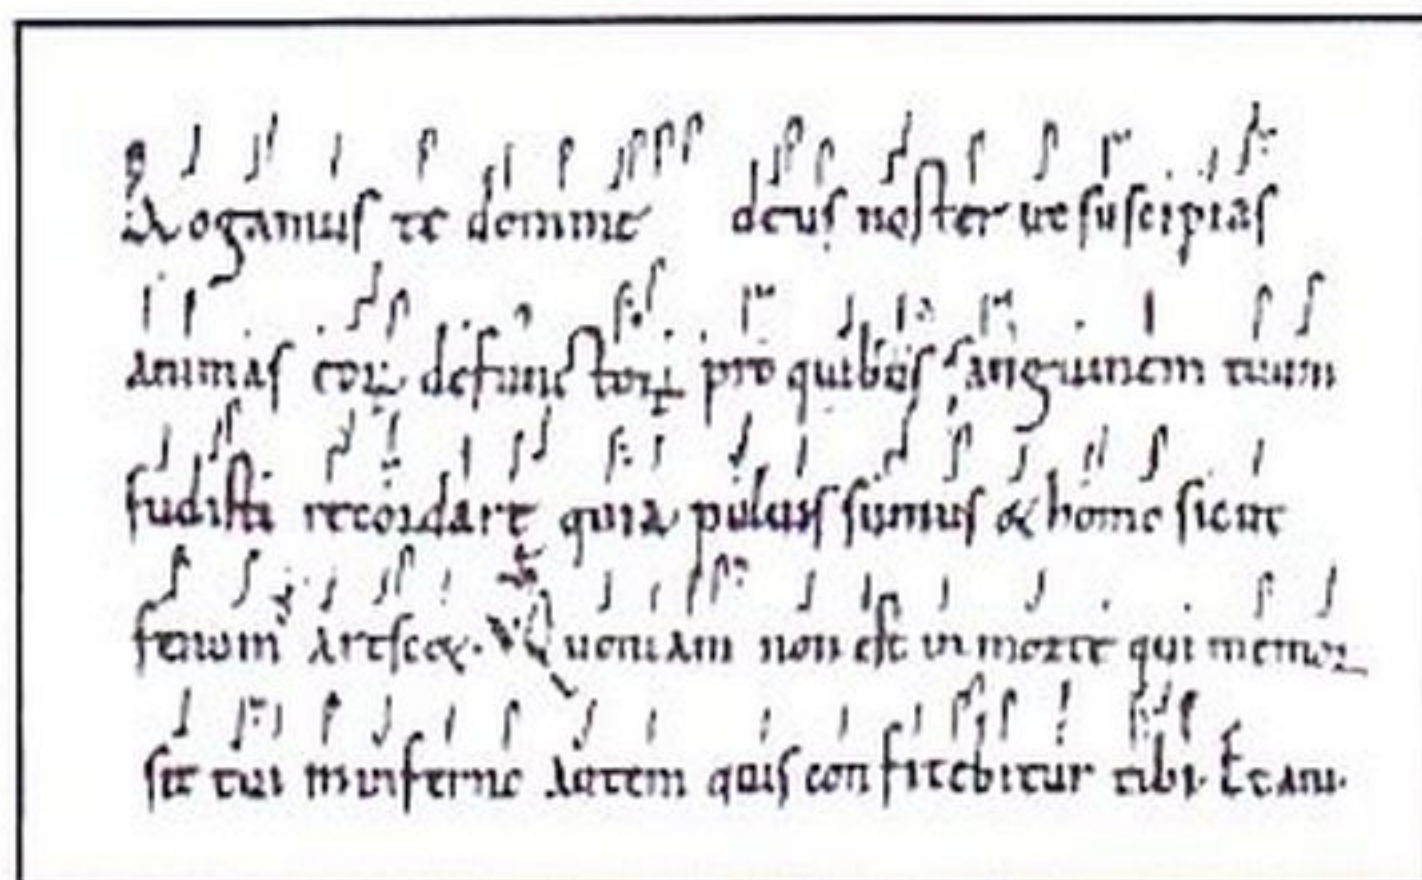 Rogamus te domine deus noster ut suscipias
animas cor defunctor pro quibus sanguinem tuum
fudisti recordare quia puluis sumus & homo sicut
fenum
Quoniam non est in morte qui memor
sit tui in inferno autem quis confitebitur tibi. Et ani.